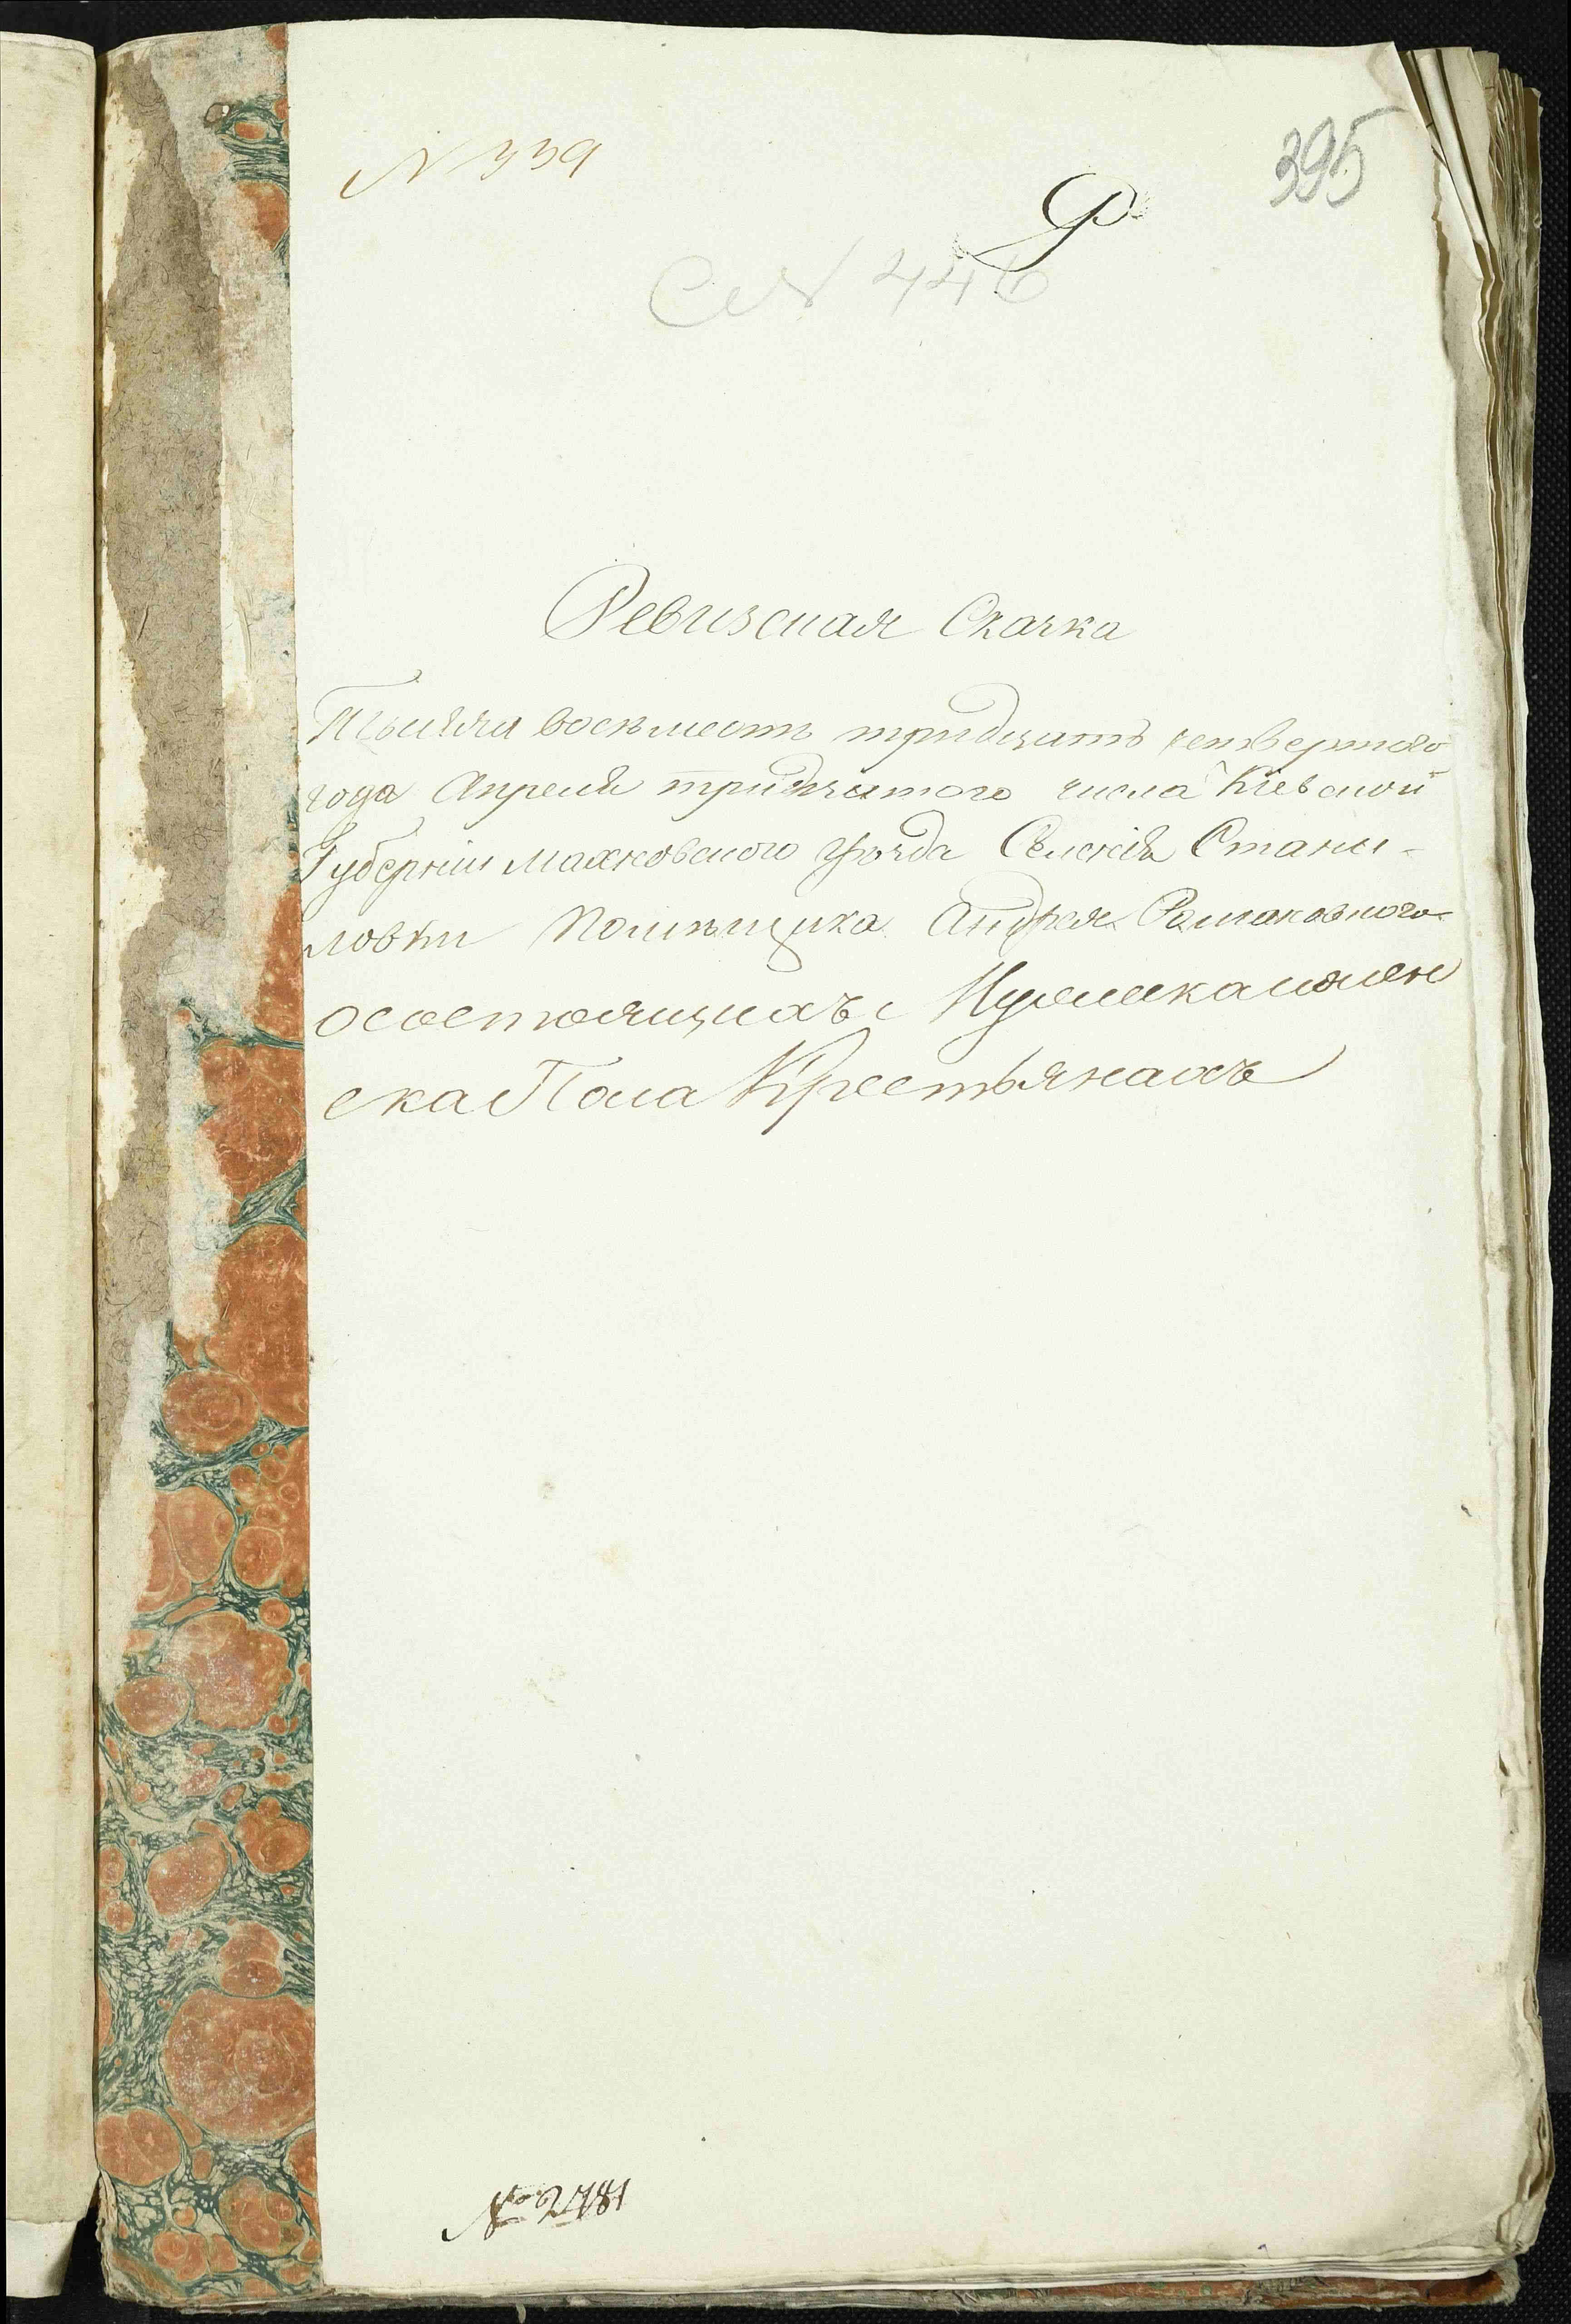 N 339
395
446
Ревизская Сказка
Тысяча восемьсотъ тридцать четвертого
года Апреля тридцатого числа Кіевской
Губерніи Махновского уѣзда Селенія Стани-
ловки Помѣщика Андрея
осостоящихъ Мужеска иженс
ска Пола Крестьянахъ
№ 2481